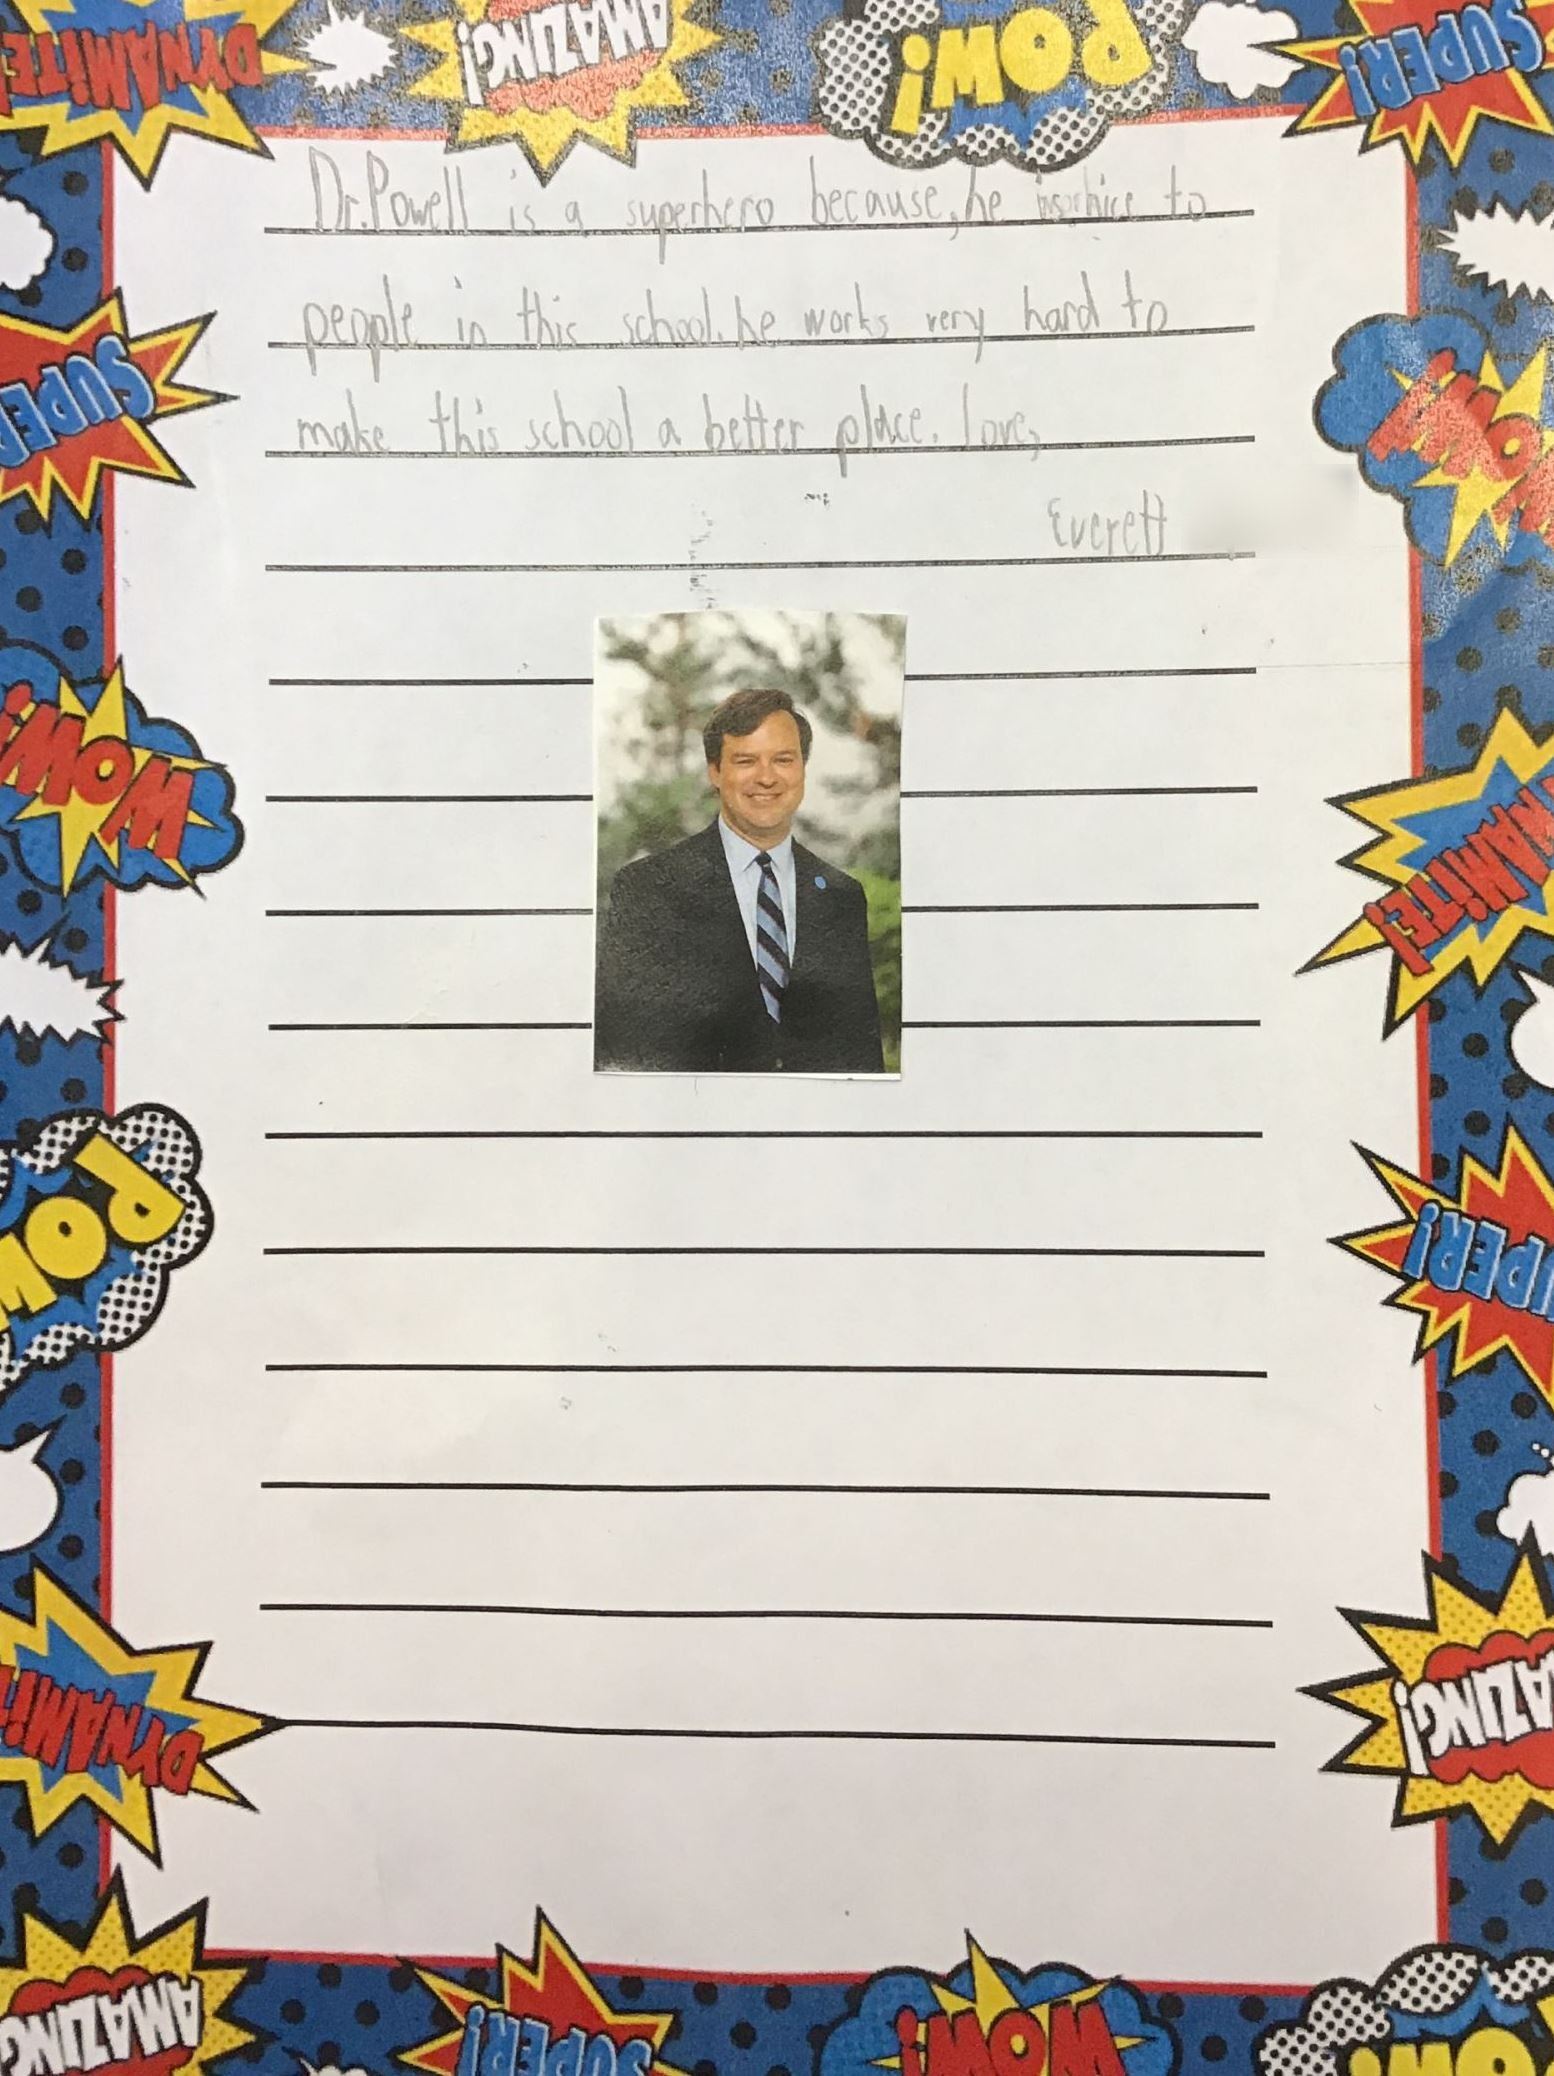 DYNAMiTE!
AMAZiNG!
POW!
SUPER!
Dr.Powell is a superhero because, he is so nice to
people in this school. he works very hard to
SUPER
WOW!
make this school a better place. love,
Everett
WOW!
NAMiTE!
POW
UPER!
DYNAMiT
AZiNG!
AMAZiNG
SUPER!
WOW!